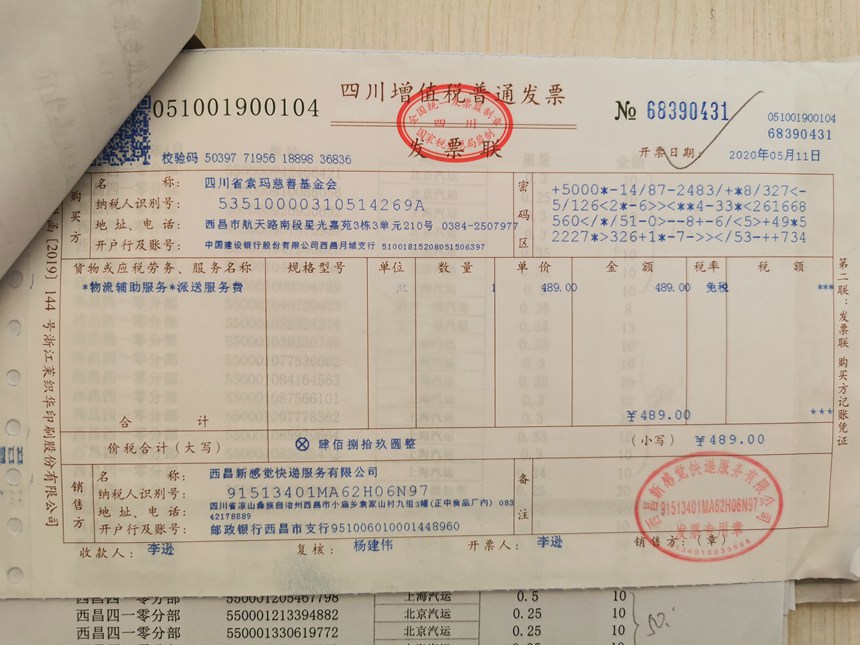 四川增值税普通发票
051001900104
全国统一发票监制章
四川
国家税务总局监制
发票联
№ 68390431
051001900104
68390431
校验码 50397 71956 18898 36836
开票日期: 2020年05月11日
购买方
名 称: 四川省索玛慈善基金会
纳税人识别号: 53510000310514269A
地 址、电 话: 西昌市航天路南段星光嘉苑3栋3单元210号 0384-2507977
开户行及账号: 中国建设银行股份有限公司西昌月城支行 51001815208051506397
密码区
+5000*-14/87-2483/+*8/327<-
5/126<2*-6>><**4-33*<261668
560</*/51-0>--8+-6/<5>+49*5
2227*>326+1*-7->></53-++734
货物或应税劳务、服务名称 规格型号 单位 数 量 单 价 金 额 税率 税 额
*物流辅助服务*派送服务费 批 1 489.00 489.00 免税 ***
合 计 ¥489.00 ***
价税合计(大写) ⊗ 肆佰捌拾玖圆整 (小写) ¥489.00
销售方
名 称: 西昌新感觉快递服务有限公司
纳税人识别号: 91513401MA62H06N97
地 址、电 话: 四川省凉山彝族自治州西昌市小庙乡袁家山村九组3幢(正中食品厂内) 083
42178889
开户行及账号: 邮政银行西昌市支行951006010001448960
备注
收款人: 李逊 复核: 杨建伟 开票人: 李逊 销售方:(章)
西昌新感觉快递服务有限公司
91513401MA62H06N97
发票专用章
第二联:发票联 购买方记账凭证
[2019]144号浙江莱织华印刷股份有限公司
西昌四一零分部 550001205467798 上海汽运 0.5 10
西昌四一零分部 550001213394882 北京汽运 0.25 10
西昌四一零分部 550001330619772 北京汽运 0.25 10